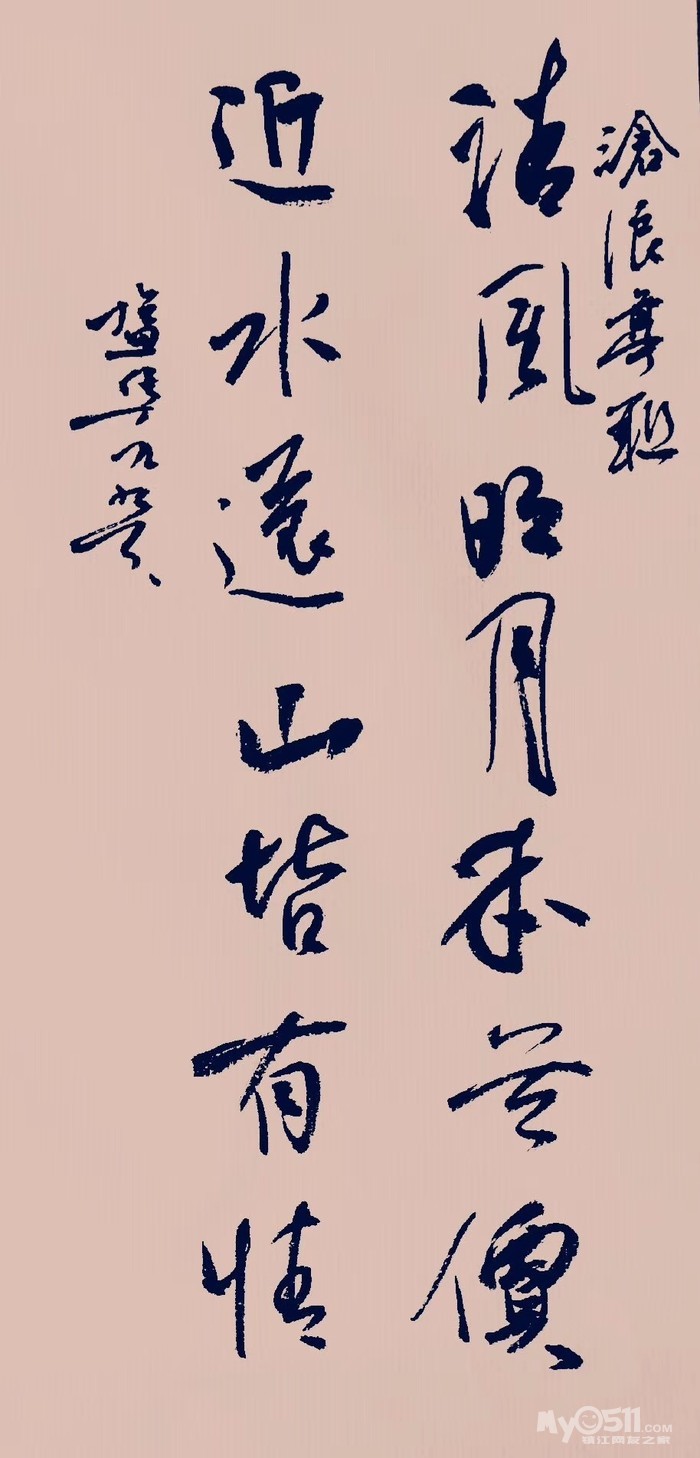 滄浪亭聯
清風明月本無價
近水遠山皆有情
My0511.COM
镇江网友之家